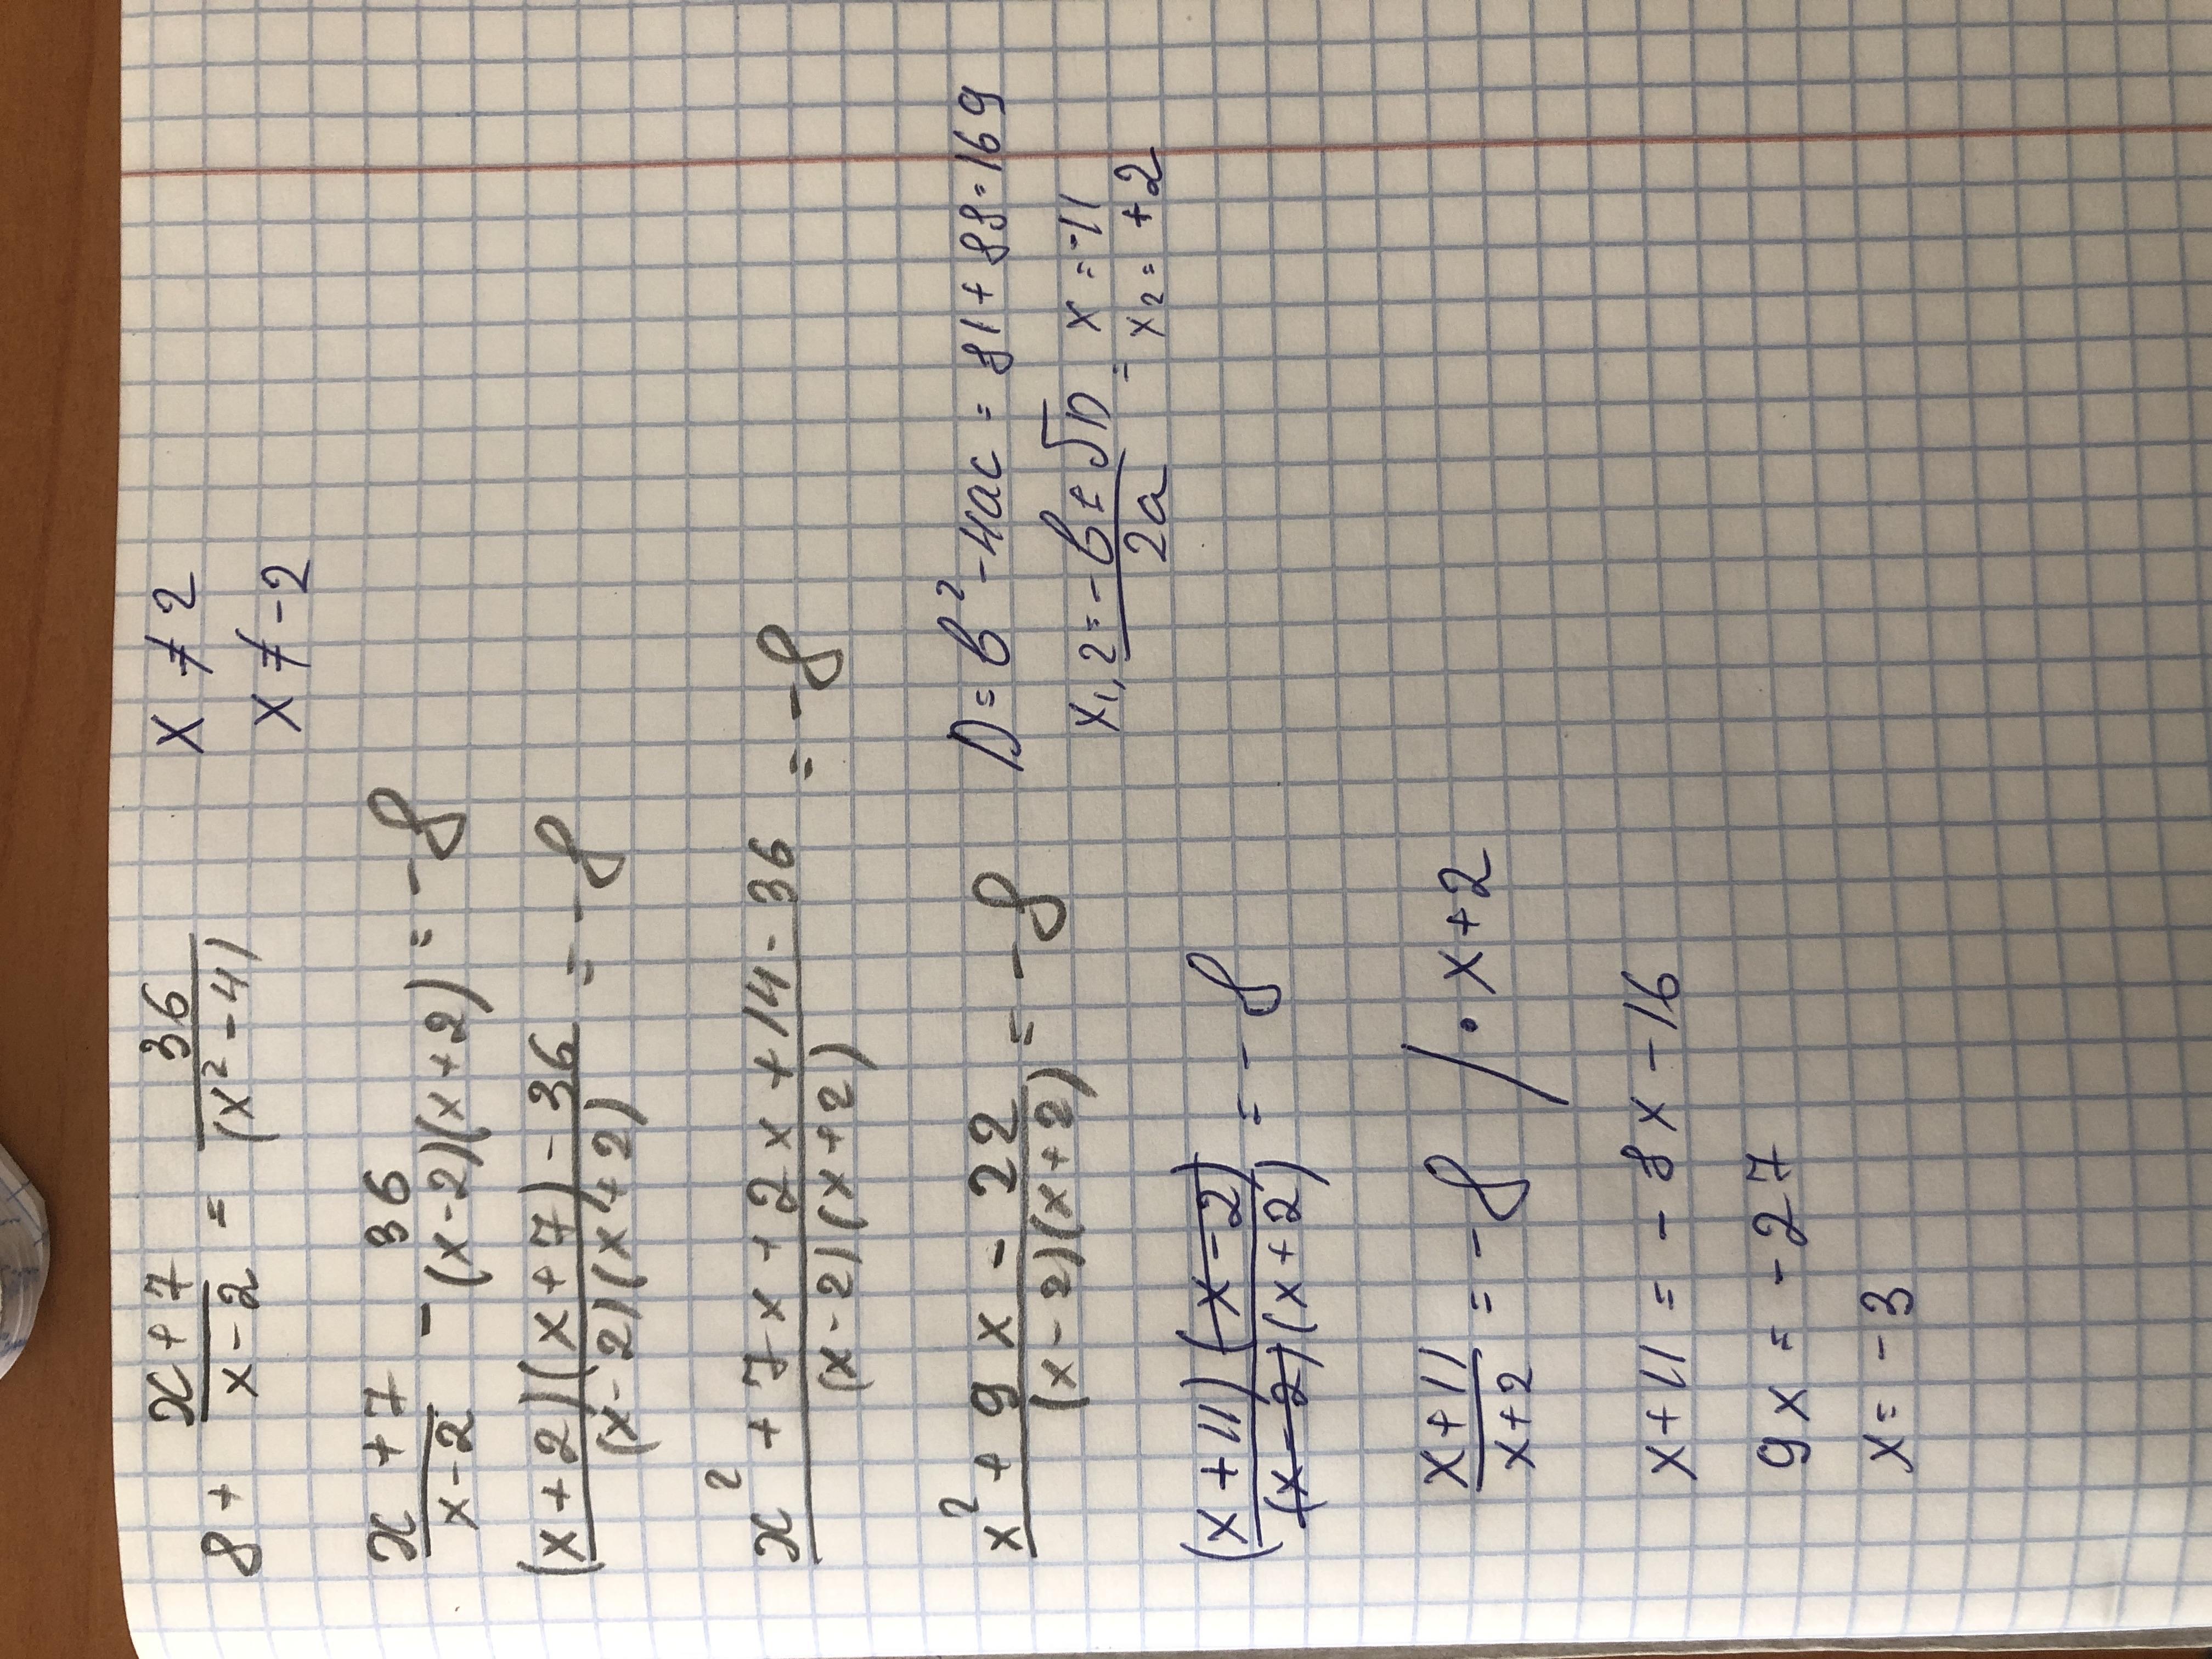 8 + (x+7)/(x-2) = 36/(x² - 4)   x ≠ 2
x ≠ -2
(x+7)/(x-2) - 36/((x-2)(x+2)) = -8
((x+2)(x+7) - 36)/((x-2)(x+2)) = -8
(x² + 7x + 2x + 14 - 36)/((x-2)(x+2)) = -8
(x² + 9x - 22)/((x-2)(x+2)) = -8   D = b² - 4ac = 81 + 88 = 169
x₁,₂ = (-b ± √D)/2a = x = -11
x₂ = +2
((x+11)(x-2))/((x-2)(x+2)) = -8
(x+11)/(x+2) = -8 / · x+2
x+11 = -8x - 16
9x = -27
x = -3